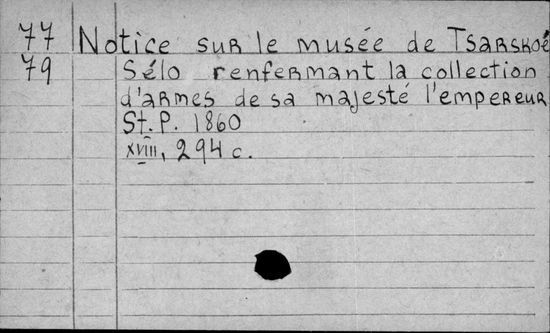 77 Notice sur le musée de Tsarskoé
79 Sélo renfermant la collection
d'armes de sa majesté l'empereur
St. P. 1860
XVIII, 294 c.